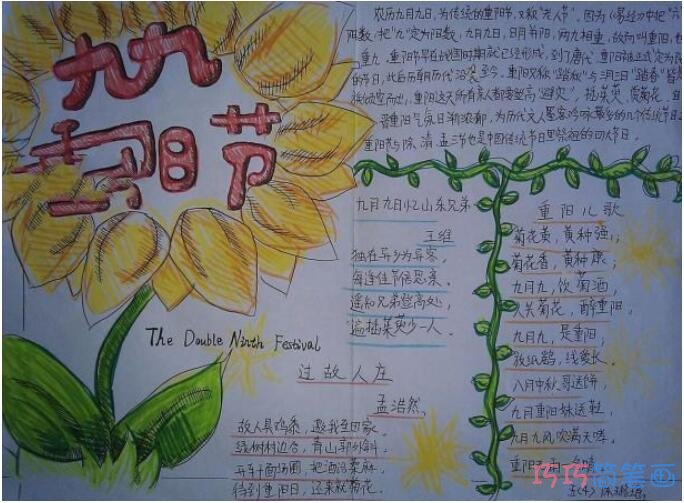 九九
重阳节
农历九月九日,为传统的重阳节,又称"老人节"。因为《易经》中把"六"
阳数,把"九"定为阳数,九月九日,日月并阳,两九相重,故而叫重阳,也
重九,重阳节早在战国时期就已经形成,到了唐代,重阳被正式定为民
的节日,此后历朝历代沿袭至今,重阳又称"踏秋"与
重阳这天所有亲人都要登高"避灾",插茱萸、赏菊花。自
重阳节与除、清、盂三节也是中国传统节日里祭祖的四大节日。
九月九日忆山东兄弟
王维
独在异乡为异客,
每逢佳节倍思亲。
遥知兄弟登高处,
遍插茱萸少一人。
重阳儿歌
菊花黄,黄种强;
菊花香,黄种康;
九月九,饮菊酒,
人共菊花,醉重阳。
九月九,是重阳;
放纸鹞,线爱长。
八月中秋哥送饼,
九月重阳妹送鞋,
九月九风吹满天哮。
The Double Ninth Festival
过故人庄
孟浩然
故人具鸡黍,邀我至田家。
绿树村边合,青山郭外斜。
开轩面场圃,把酒话桑麻。
待到重阳日,还来就菊花。
巧巧简笔画